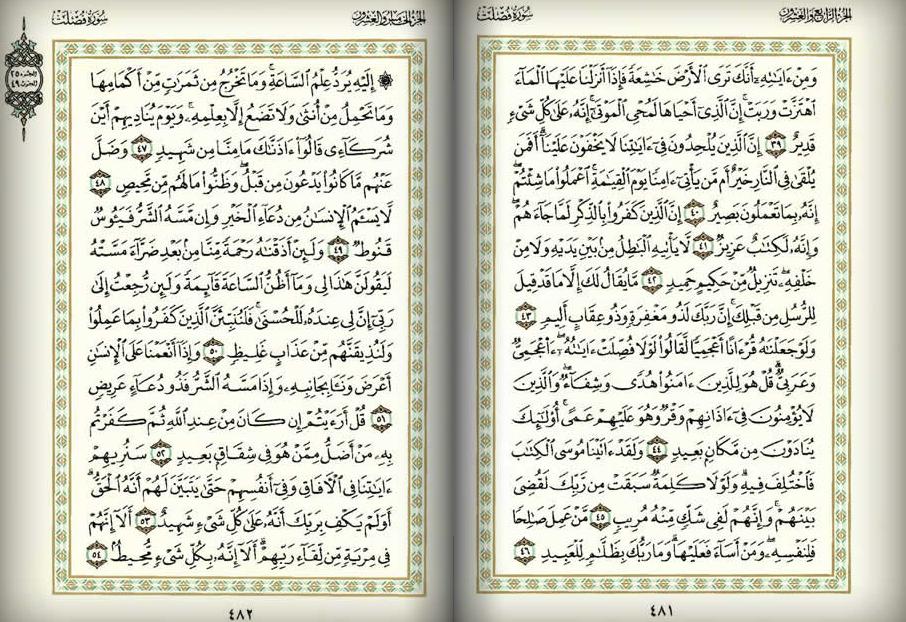 الجزء الرابع والعشرون سورة فصلت
وَمِنْ ءَايَٰتِهِۦٓ أَنَّكَ تَرَى ٱلْأَرْضَ خَٰشِعَةً فَإِذَآ أَنزَلْنَا عَلَيْهَا ٱلْمَآءَ
ٱهْتَزَّتْ وَرَبَتْ ۚ إِنَّ ٱلَّذِىٓ أَحْيَاهَا لَمُحْىِ ٱلْمَوْتَىٰٓ ۚ إِنَّهُۥ عَلَىٰ كُلِّ شَىْءٍ
قَدِيرٌ ٣٩ إِنَّ ٱلَّذِينَ يُلْحِدُونَ فِىٓ ءَايَٰتِنَا لَا يَخْفَوْنَ عَلَيْنَآ ۗ أَفَمَن
يُلْقَىٰ فِى ٱلنَّارِ خَيْرٌ أَم مَّن يَأْتِىٓ ءَامِنًا يَوْمَ ٱلْقِيَٰمَةِ ۚ ٱعْمَلُوا۟ مَا شِئْتُمْ ۖ
إِنَّهُۥ بِمَا تَعْمَلُونَ بَصِيرٌ ٤٠ إِنَّ ٱلَّذِينَ كَفَرُوا۟ بِٱلذِّكْرِ لَمَّا جَآءَهُمْ ۖ
وَإِنَّهُۥ لَكِتَٰبٌ عَزِيزٌ ٤١ لَّا يَأْتِيهِ ٱلْبَٰطِلُ مِنۢ بَيْنِ يَدَيْهِ وَلَا مِنْ
خَلْفِهِۦ ۖ تَنزِيلٌ مِّنْ حَكِيمٍ حَمِيدٍ ٤٢ مَّا يُقَالُ لَكَ إِلَّا مَا قَدْ قِيلَ
لِلرُّسُلِ مِن قَبْلِكَ ۚ إِنَّ رَبَّكَ لَذُو مَغْفِرَةٍ وَذُو عِقَابٍ أَلِيمٍ ٤٣
وَلَوْ جَعَلْنَٰهُ قُرْءَانًا أَعْجَمِيًّا لَّقَالُوا۟ لَوْلَا فُصِّلَتْ ءَايَٰتُهُۥٓ ۖ ءَا۬عْجَمِىٌّ
وَعَرَبِىٌّ ۗ قُلْ هُوَ لِلَّذِينَ ءَامَنُوا۟ هُدًى وَشِفَآءٌ ۖ وَٱلَّذِينَ
لَا يُؤْمِنُونَ فِىٓ ءَاذَانِهِمْ وَقْرٌ وَهُوَ عَلَيْهِمْ عَمًى ۚ أُو۟لَٰٓئِكَ
يُنَادَوْنَ مِن مَّكَانٍۭ بَعِيدٍ ٤٤ وَلَقَدْ ءَاتَيْنَا مُوسَى ٱلْكِتَٰبَ
فَٱخْتُلِفَ فِيهِ ۗ وَلَوْلَا كَلِمَةٌ سَبَقَتْ مِن رَّبِّكَ لَقُضِىَ
بَيْنَهُمْ ۚ وَإِنَّهُمْ لَفِى شَكٍّ مِّنْهُ مُرِيبٍ ٤٥ مَّنْ عَمِلَ صَٰلِحًا
فَلِنَفْسِهِۦ ۖ وَمَنْ أَسَآءَ فَعَلَيْهَا ۗ وَمَا رَبُّكَ بِظَلَّٰمٍ لِّلْعَبِيدِ ٤٦
٤٨١
الجزء الخامس والعشرون سورة فصلت
الجزء ٢٥
الحزب ٤٩
۞ إِلَيْهِ يُرَدُّ عِلْمُ ٱلسَّاعَةِ ۚ وَمَا تَخْرُجُ مِن ثَمَرَٰتٍ مِّنْ أَكْمَامِهَا
وَمَا تَحْمِلُ مِنْ أُنثَىٰ وَلَا تَضَعُ إِلَّا بِعِلْمِهِۦ ۚ وَيَوْمَ يُنَادِيهِمْ أَيْنَ
شُرَكَآءِى قَالُوٓا۟ ءَاذَنَّٰكَ مَا مِنَّا مِن شَهِيدٍ ٤٧ وَضَلَّ
عَنْهُم مَّا كَانُوا۟ يَدْعُونَ مِن قَبْلُ ۖ وَظَنُّوا۟ مَا لَهُم مِّن مَّحِيصٍ ٤٨
لَّا يَسْـَٔمُ ٱلْإِنسَٰنُ مِن دُعَآءِ ٱلْخَيْرِ وَإِن مَّسَّهُ ٱلشَّرُّ فَيَـُٔوسٌ
قَنُوطٌ ٤٩ وَلَئِنْ أَذَقْنَٰهُ رَحْمَةً مِّنَّا مِنۢ بَعْدِ ضَرَّآءَ مَسَّتْهُ
لَيَقُولَنَّ هَٰذَا لِى وَمَآ أَظُنُّ ٱلسَّاعَةَ قَآئِمَةً وَلَئِن رُّجِعْتُ إِلَىٰ
رَبِّىٓ إِنَّ لِى عِندَهُۥ لَلْحُسْنَىٰ ۚ فَلَنُنَبِّئَنَّ ٱلَّذِينَ كَفَرُوا۟ بِمَا عَمِلُوا۟
وَلَنُذِيقَنَّهُم مِّنْ عَذَابٍ غَلِيظٍ ٥٠ وَإِذَآ أَنْعَمْنَا عَلَى ٱلْإِنسَٰنِ
أَعْرَضَ وَنَـَٔا بِجَانِبِهِۦ وَإِذَا مَسَّهُ ٱلشَّرُّ فَذُو دُعَآءٍ عَرِيضٍ
٥١ قُلْ أَرَءَيْتُمْ إِن كَانَ مِنْ عِندِ ٱللَّهِ ثُمَّ كَفَرْتُم
بِهِۦ مَنْ أَضَلُّ مِمَّنْ هُوَ فِى شِقَاقٍۭ بَعِيدٍ ٥٢ سَنُرِيهِمْ
ءَايَٰتِنَا فِى ٱلْـَٔافَاقِ وَفِىٓ أَنفُسِهِمْ حَتَّىٰ يَتَبَيَّنَ لَهُمْ أَنَّهُ ٱلْحَقُّ ۗ
أَوَلَمْ يَكْفِ بِرَبِّكَ أَنَّهُۥ عَلَىٰ كُلِّ شَىْءٍ شَهِيدٌ ٥٣ أَلَآ إِنَّهُمْ
فِى مِرْيَةٍ مِّن لِّقَآءِ رَبِّهِمْ ۗ أَلَآ إِنَّهُۥ بِكُلِّ شَىْءٍ مُّحِيطٌۢ ٥٤
٤٨٢